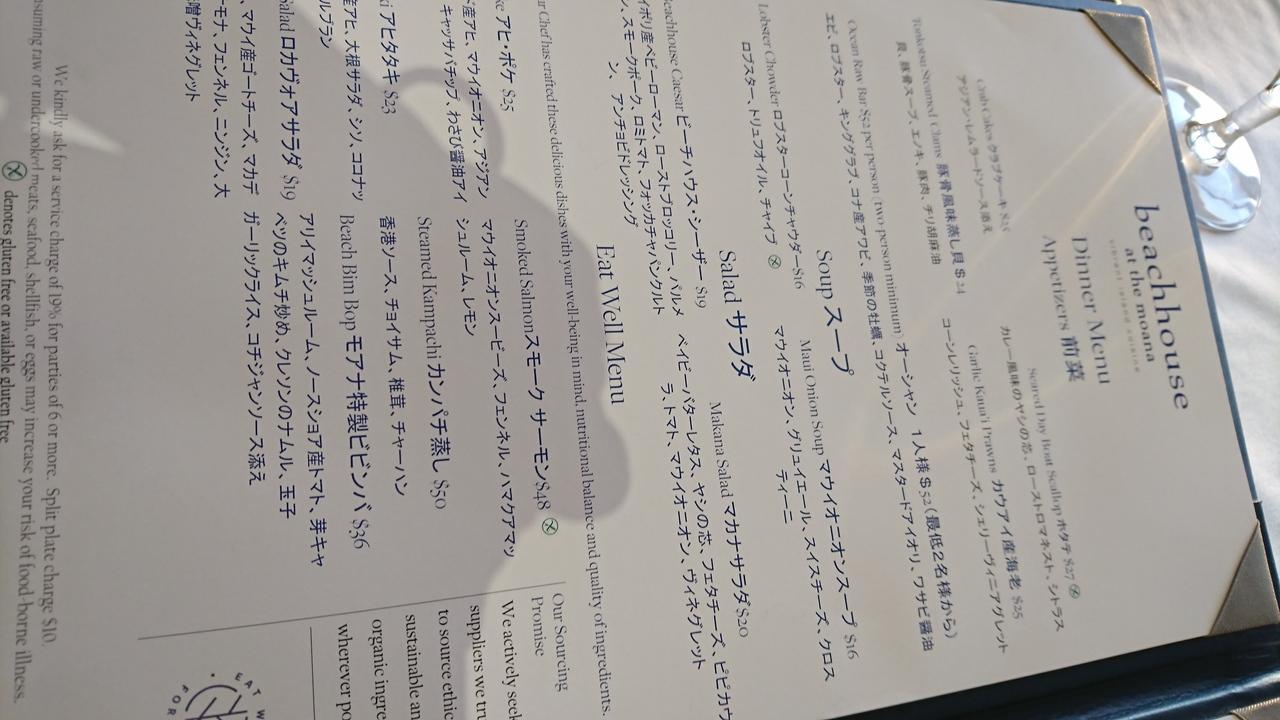 beachhouse
at the moana
vibrant island cuisine
Dinner Menu
Appetizers 前菜
Crab Cakes クラブケーキ $25
アジアン・レムラードソース添え
Seared Day Boat Scallop ホタテ $27
カレー風味のヤシの芯、ローストロマネスト、シトラス
Tonkotsu Steamed Clams 豚骨風味蒸し貝 $24
貝、豚骨スープ、エノキ、豚肉、チリ胡麻油
Garlic Kaua'i Prawns カウアイ産海老 $25
コーンレリッシュ、フェタチーズ、シェリーヴィニアグレット
Ocean Raw Bar $52 per person (two-person minimum) オーシャン 1人様 $52(最低2名様から)
エビ、ロブスター、キングクラブ、コナ産アワビ、季節の牡蠣、コクテルソース、マスタードアイオリ、ワサビ醤油
Soup スープ
Lobster Chowder ロブスターコーンチャウダー$16
ロブスター、トリュフオイル、チャイブ
Maui Onion Soup マウイオニオンスープ $16
マウイオニオン、グリュイエール、スイスチーズ、クロス
ティーニ
Salad サラダ
Beachhouse Caesar ビーチハウス・シーザー $19
イポリ産ベビーローマン、ローストブロッコリー、パルメ
ン、スモークポーク、ロミトマト、フォッカチャパンクルト
ン、 アンチョビドレッシング
Makana Salad マカナサラダ $20
ベイビーバターレタス、ヤシの芯、フェタチーズ、ピピカウ
ラ、トマト、マウイオニオン、ヴィネグレット
Eat Well Menu
ur Chef has crafted these delicious dishes with your well-being in mind, nutritional balance and quality of ingredients.
ke アヒ・ポケ $25
産アヒ、マウイオニオン、アジアン
キャッサバチップ、わさび醤油アイ
ki アヒタタキ $23
産アヒ、大根サラダ、シソ、ココナッ
ルブラン
Salad ロカヴォアサラダ $19
、マウイ産ゴートチーズ、マカデ
ーモナ、フェンネル、ニンジン、大
噌ヴィネグレット
Smoked Salmonスモーク サーモン$48
マウイオニオンスービーズ、フェンネル、ハマクアマッ
シュルーム、レモン
Steamed Kampachi カンパチ蒸し $50
香港ソース、チョイサム、椎茸、チャーハン
Beach Bim Bop モアナ特製ビビンバ $36
アリイマッシュルーム、ノースショア産トマト、芽キャ
ベツのキムチ炒め、クレソンのナムル、玉子
ガーリックライス、コチジャンソース添え
Our Sourcing
Promise
We actively seek
suppliers we tru
to source ethic
sustainable an
organic ingre
wherever po
EAT W
FOR
We kindly ask for a service charge of 19% for parties of 6 or more. Split plate charge $10.
suming raw or undercooked meats, seafood, shellfish, or eggs may increase your risk of food-borne illness.
denotes gluten free or available gluten free